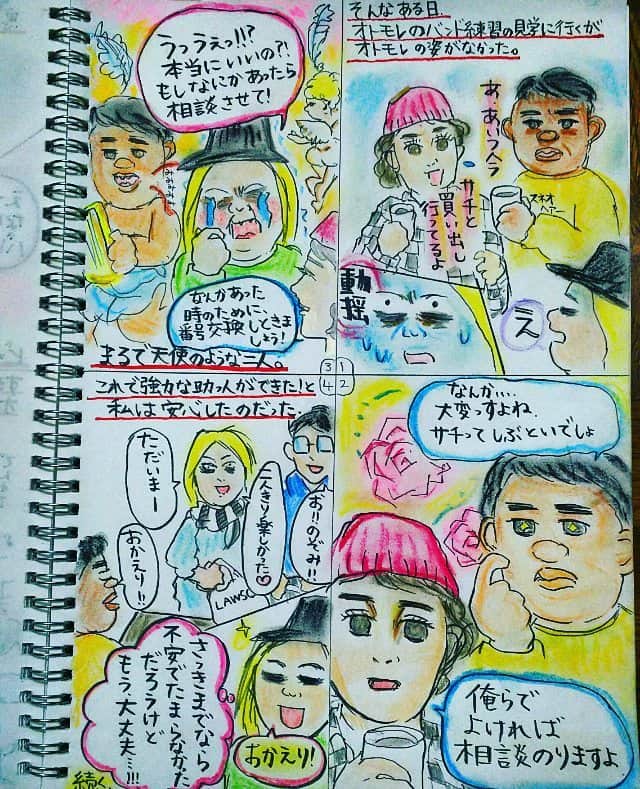 そんなある日、
オトモレのバンド練習の見学に行くが
オトモレの姿がなかった。
あ、あいつ今
サチと
買い出し
行ってるよ
スネオ
ヘアー
え
動揺
なんか…
大変っすよね、
サチってしぶといでしょ
俺らで
よければ
相談のりますよ
うっうぇっ!!?
本当にいいの?!
もしなにかあったら
相談させて!
なんかあった
時のために、
番号交換しときま
しょう!
まるで天使のような二人。
3 1
4 2
これで強力な助っ人ができた!と
私は安心したのだった
ただいまー
おかえり!!
お!!のぞみ!!
二人きり楽しかった♡
LAWSO
さっきまでなら
不安でたまらなかった
だろうけど
もう、大丈夫…!!!
おかえり!
続く